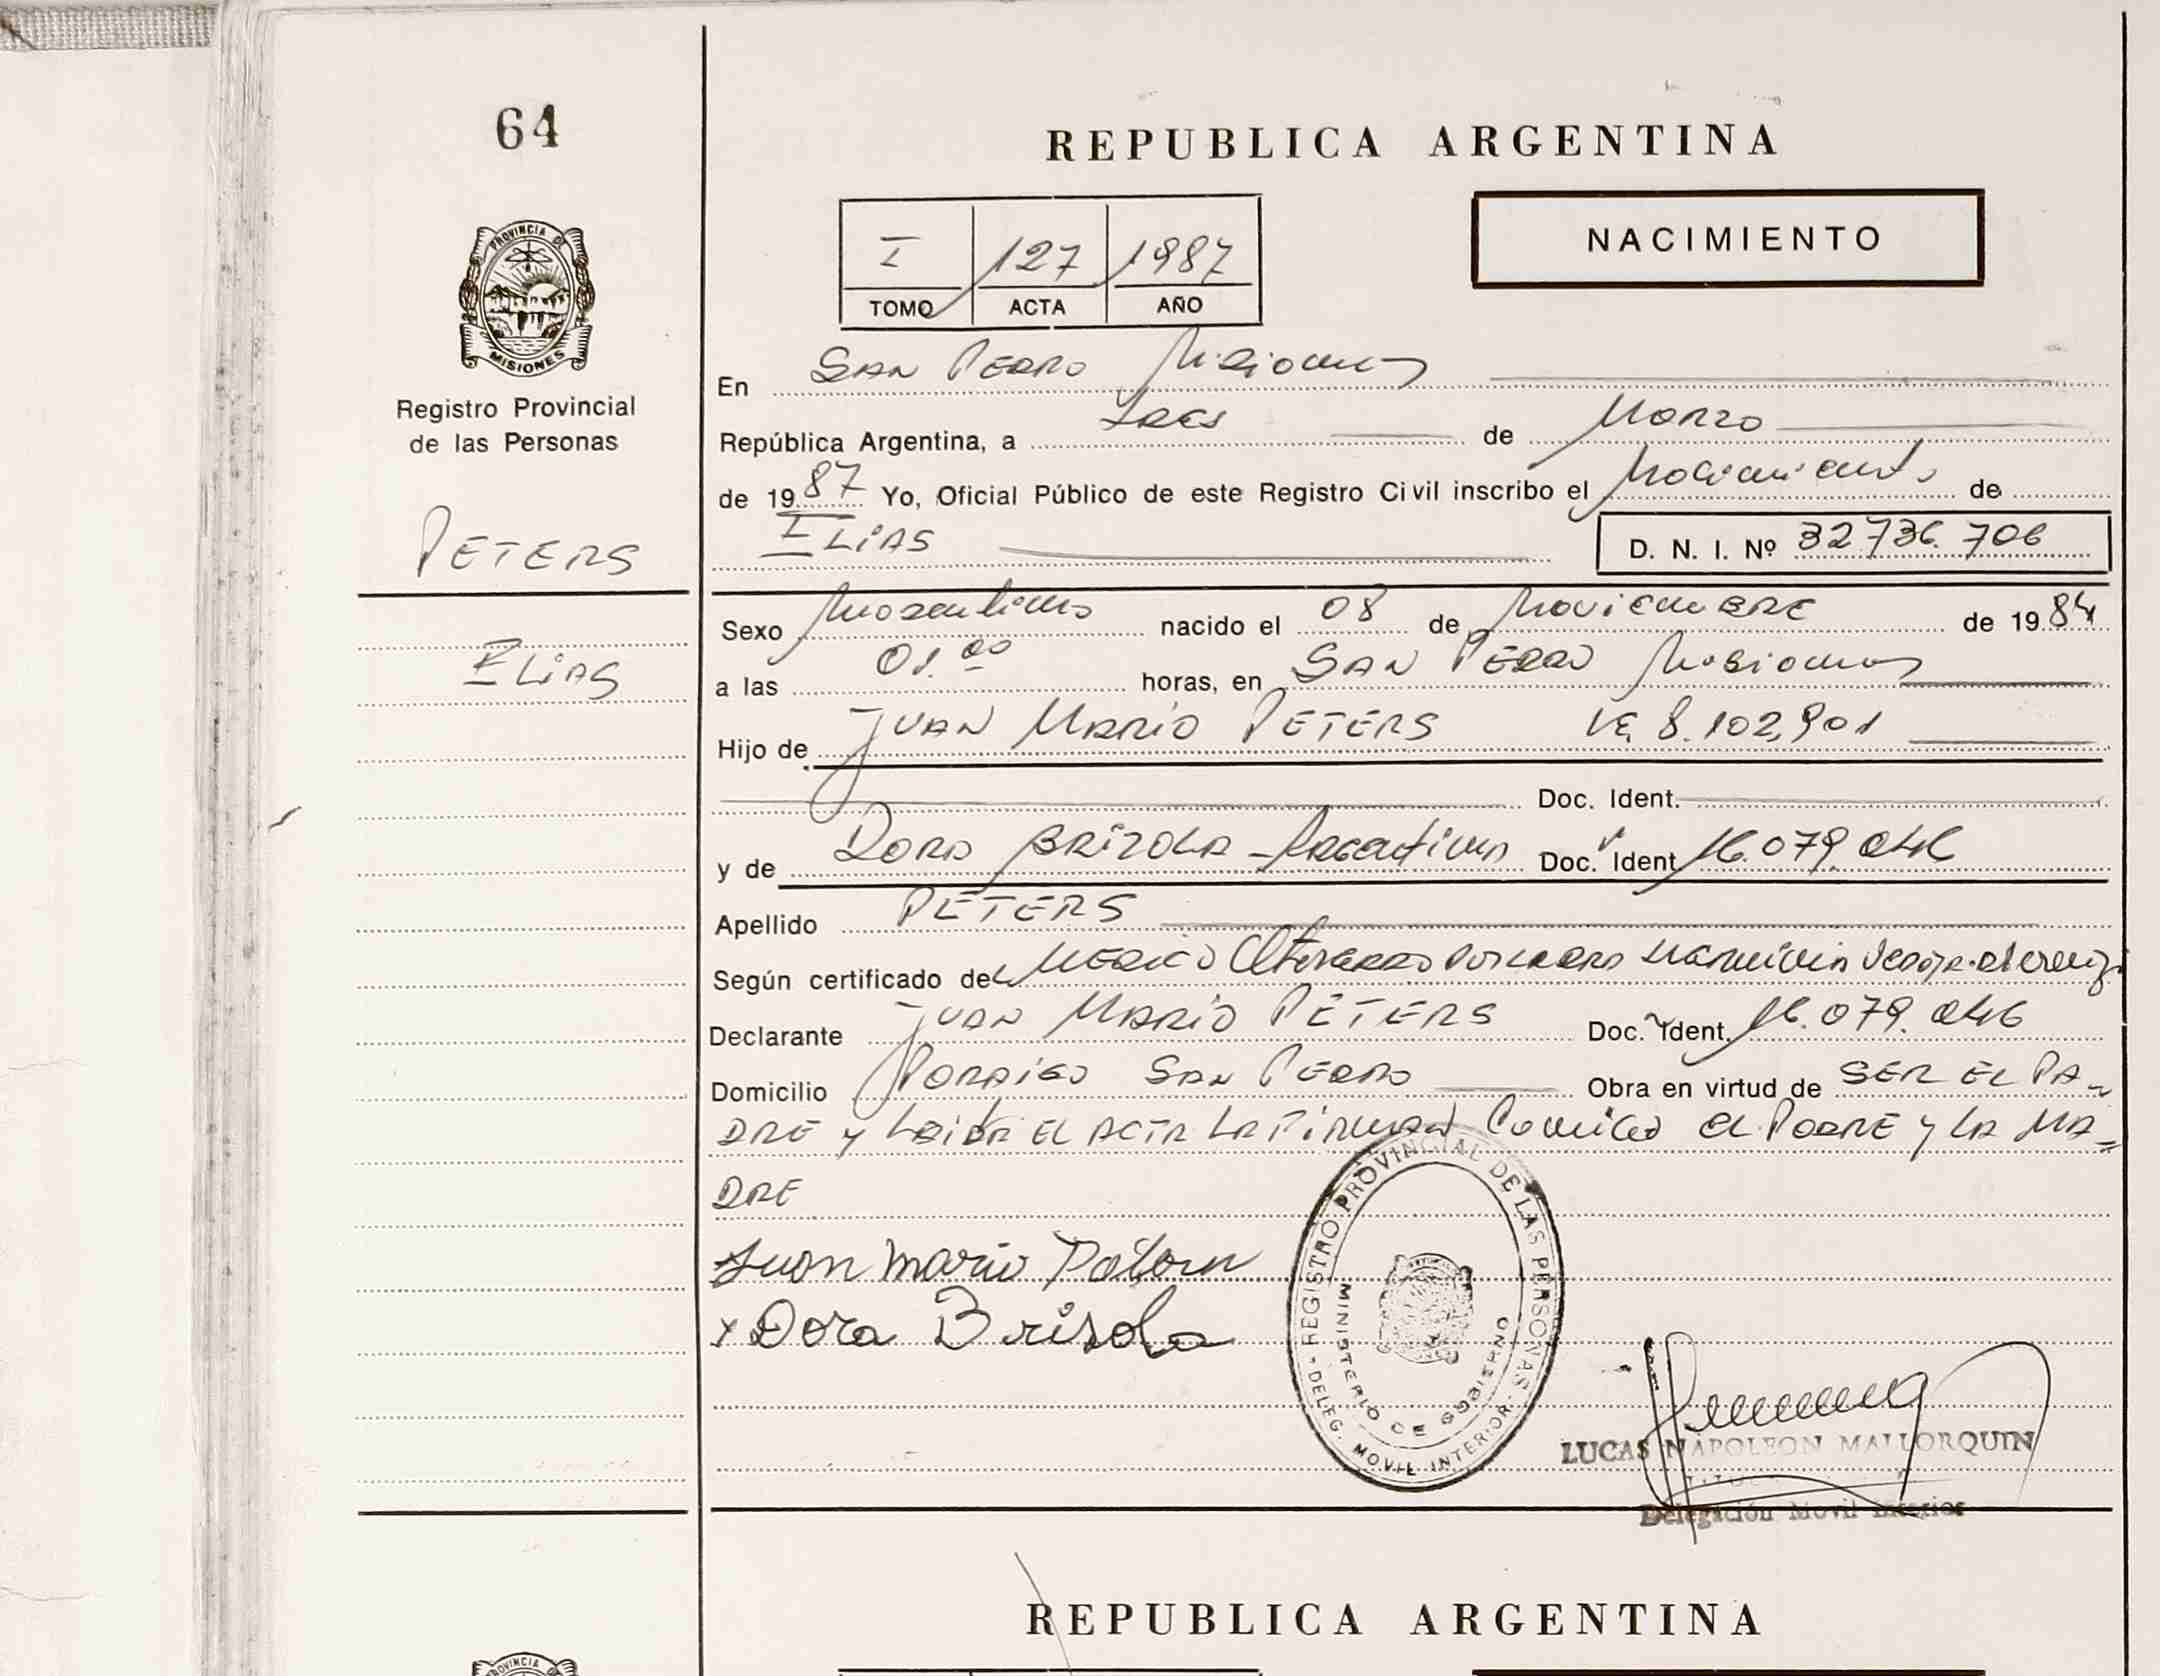 64
PROVINCIA DE
MISIONES
Registro Provincial
de las Personas
PETERS
ELIAS
REPUBLICA ARGENTINA
I 127 1987
TOMO ACTA AÑO
NACIMIENTO
En SAN PEDRO Misiones
República Argentina, a TRES de MARZO
de 1987 Yo, Oficial Público de este Registro Civil inscribo el Nacimiento de
ELIAS
D. N. I. Nº 32736.706
Sexo Masculino nacido el 08 de NoviemBRE de 1984
a las 01.00 horas, en SAN PEDRO Misiones
Hijo de JUAN MARIO PETERS 8.102,901
Doc. Ident.
y de DORA BRIZOLA - Argentina Doc. Ident 16.079.046
Apellido PETERS
Según certificado del MEDICO
Declarante JUAN MARIO PETERS Doc. Ident. 16.079.046
Domicilio SAN PEDRO Obra en virtud de SER EL PA-
DRE Y LEIDA EL ACTA LA FIRMAN Conmigo el PADRE Y LA MA-
DRE
Juan Mario
x Dora Brisola
REGISTRO PROVINCIAL DE LAS PERSONAS
MINISTERIO DE GOBIERNO
DELEG. MOVIL INTERIOR
LUCAS NAPOLEON MALLORQUIN
Delegación Movil Interior
REPUBLICA ARGENTINA
PROVINCIA